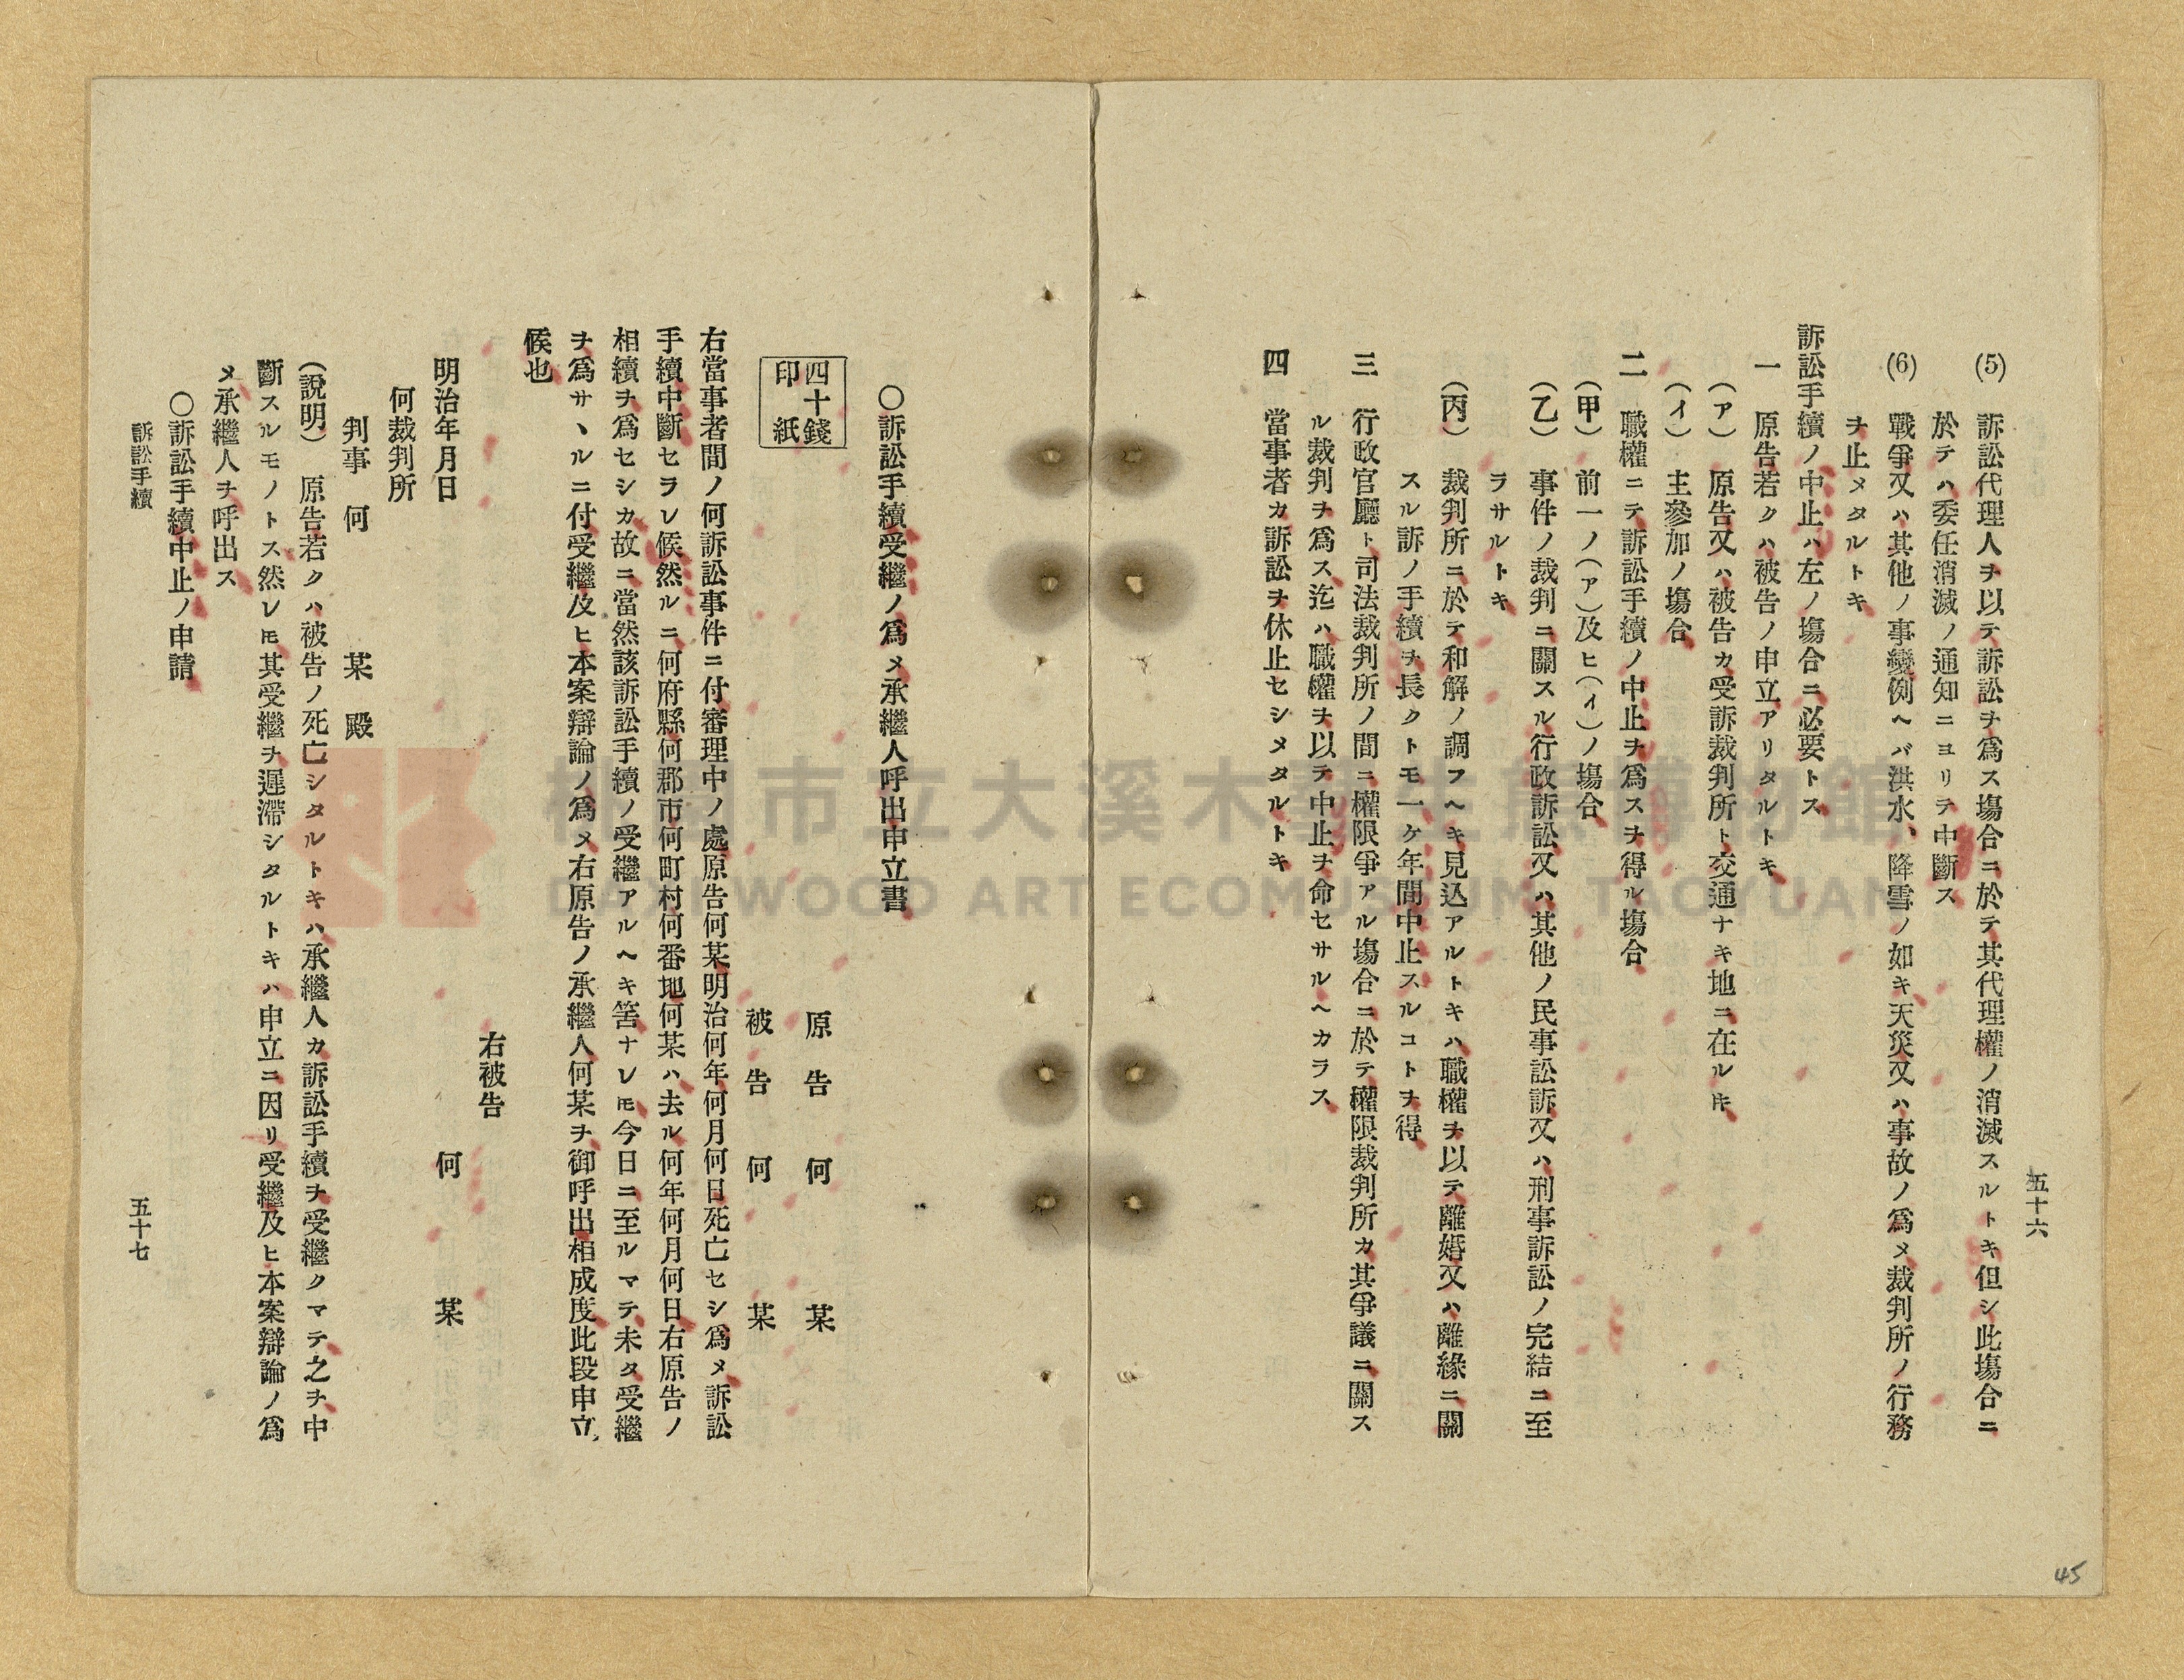 五十六
(5) 訴訟代理人ヲ以テ訴訟ヲ爲ス塲合ニ於テ其代理權ノ消滅スルトキ但シ此塲合ニ
於テハ委任消滅ノ通知ニヨリテ中斷ス
(6) 戰爭又ハ其他ノ事變例ヘバ洪水、降雪ノ如キ天災又ハ事故ノ爲メ裁判所ノ行務
ヲ止メタルトキ
訴訟手續ノ中止ハ左ノ塲合ニ必要トス
一 原告若クハ被告ノ申立アリタルトキ
(ア) 原告又ハ被告カ受訴裁判所ト交通ナキ地ニ在ルㇳキ
(イ) 主參加ノ塲合
二 職權ニテ訴訟手續ノ中止ヲ爲スヲ得ル塲合
(甲) 前一ノ(ア)及ヒ(イ)ノ塲合
(乙) 事件ノ裁判ニ關スル行政訴訟又ハ其他ノ民事訟訴又ハ刑事訴訟ノ完結ニ至
ラサルトキ
(丙) 裁判所ニ於テ和解ノ調フヘキ見込アルトキハ職權ヲ以テ離婚又ハ離緣ニ關
スル訴ノ手續ヲ長クトモ一ケ年間中止スルコトヲ得
三 行政官廳ト司法裁判所ノ間ニ權限爭アル塲合ニ於テ權限裁判所カ其爭議ニ關ス
ル裁判ヲ爲ス迄ハ職權ヲ以テ中止ヲ命セサルヘカラス
四 當事者カ訴訟ヲ休止セシメタルトキ
〇訴訟手續受繼ノ爲メ承繼人呼出申立書
四十錢
印紙
原告 何 某
被告 何 某
右當事者間ノ何訴訟事件ニ付審理中ノ處原告何某明治何年何月何日死亡セシ爲メ訴訟
手續中斷セラレ候然ルニ何府縣何郡市何町村何番地何某ハ去ル何年何月何日右原告ノ
相續ヲ爲セシカ故ニ當然該訴訟手續ノ受繼アルヘキ筈ナレ𪜈今日ニ至ルマテ未タ受繼
ヲ爲サヽルニ付受繼及ヒ本案辯論ノ爲メ右原告ノ承繼人何某ヲ御呼出相成度此段申立
候也
右被告
明治年月日 何 某
何裁判所
判事 何 某 殿
(說明) 原告若クハ被告ノ死亡シタルトキハ承繼人カ訴訟手續ヲ受繼クマテ之ヲ中
斷スルモノトス然レ𪜈其受繼ヲ遲滯シタルトキハ申立ニ因リ受繼及ヒ本案辯論ノ爲
メ承繼人ヲ呼出ス
〇訴訟手續中止ノ申請
訴訟手續 五十七
45
桃園市立大溪木藝生態博物館
DAXI WOOD ART ECOMUSEUM, TAOYUAN